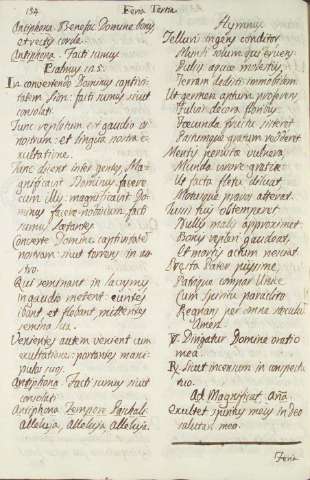 134
Feria Tertia
Antiphona. Benefac Domine bonis
et rectis corde.
Antiphona. Facti sumus
Psalmus 125.
In convertendo Dominus captivi-
tatem Sion: facti sumus sicut
consolati.
Tunc repletum est gaudio os
nostrum: et lingua nostra e-
xultatione.
Tunc dicent inter gentes, Ma-
gnificavit Dominus facere
cum illis: magnificavit Do-
minus facere nobiscum, facti
sumus Lætantes
Converte Domine captivitatē
nostram: sicut torrens in au-
stro.
Qui seminant in lacrymis
in gaudio metent. euntes
ibant, et flebant, mittentes
semina sua.
Venientes autem venient cum
exultatione: portantes mani-
pulos suos.
Antiphona. Facti sumus sicut
consolati.
Antiphona Tempore Paschali.
Alleluja, alleluja, alleluja.
Hymnus
Telluris ingens conditor
Mundi solum qui eruens
Pulsis aquæ molestijs
Terram dedisti immobilem.
Ut germen aptum proferens
Fulvis decora floribus
Fœcunda fructu sisteret
Pastumque gratum redderet
Mentis perustæ vulnera
Munda virore gratiæ
Ut facta fletu diluat
Motusque pravos atterat.
Jussis tuis obtemperet
Nullis malis approximet
Bonis repleri gaudeat
Et mortis actum nesciat.
Præsta Pater pijssime
Patrique compar Unice
Cum Spiritu paraclito
Regnans per omne sæculum
Amen.
V. Dirigatur Domine oratio
mea.
R. Sicut incensum in conspectu
tuo.
Ad Magnificat Aña.
Exultet spiritus meus in Deo
salutari meo.
Feria